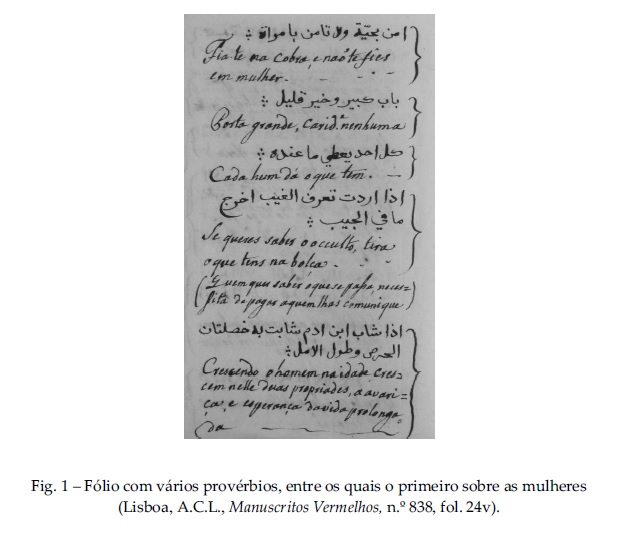 امن بحيّة ولا تامن بامراة
Fia-te na Cobra, e naõ te fies
em mulher.
باب كبير وخير قليل
Porta grande, Carid.ᵉ nenhuma
كل احد يعطي ما عنده
Cada hum dá o que tem.
اذا اردت تعرف الغيب اخرج
ما في الجيب
Se queres saber o occulto, tira
o que tens na bolça.
(Quem quer saber o que se passa, neces-
sita de pagar a quem lhas comunique)
اذا شاب ابن ادم شابت به خصلتان
الحرص وطول الامل
Crescendo o homem na idade, cres-
cem nelle duas propriades, a avari-
ça, e esperança da vida prolonga-
da
Fig. 1 – Fólio com vários provérbios, entre os quais o primeiro sobre as mulheres
(Lisboa, A.C.L., Manuscritos Vermelhos, n.º 838, fol. 24v).